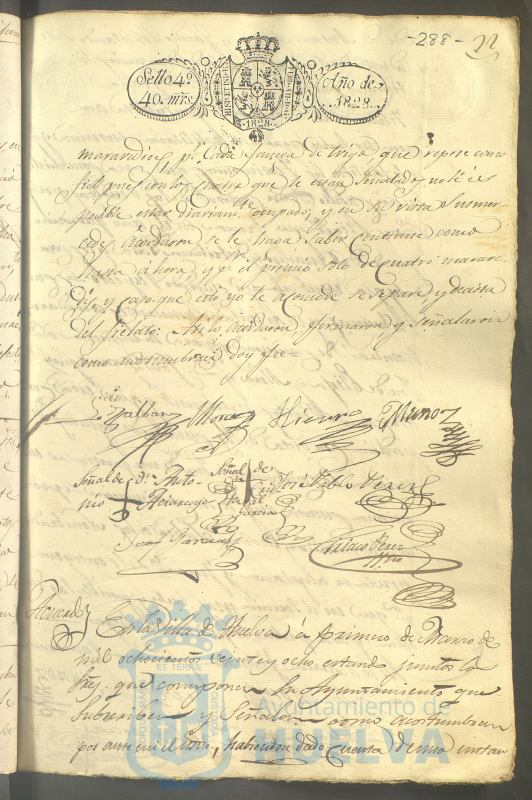 -288- 22
Sello 4º
40. mrs
HISP. ET IND. R
1828
Año de
1828.
maravidices, pr. Cada fanega de trigo, que repese como
fiel, pues con los que le estan señalados no le es
posible estar diariamte. ocupado, y en su vista Sus mer-
cedes acordaron se le haga saber continue como
hasta ahora, y pr. el premio solo de quatro marave
dis, y caso que esto no le acomode se separe y decista
del fielato: Asi lo acordaron firmaron y señalaron
como acostumbran doy fee-
Mora Hierro Muñoz
Señal de Dn. Anto-
nio
Señal de
Garcia
José Pablo Perez
José Garcia
Perez
Acuerdo
En la Villa de Huelva á primero de Marzo de
mil ochocientos veinte y ocho estando juntos los
Sres. que componen Su Ayuntamiento que
Subscriben y Señalan como acostumbran
por ante mi el Esno. habiendose dado cuenta de una instan
ET TERRA
Ayuntamiento de
HUELVA